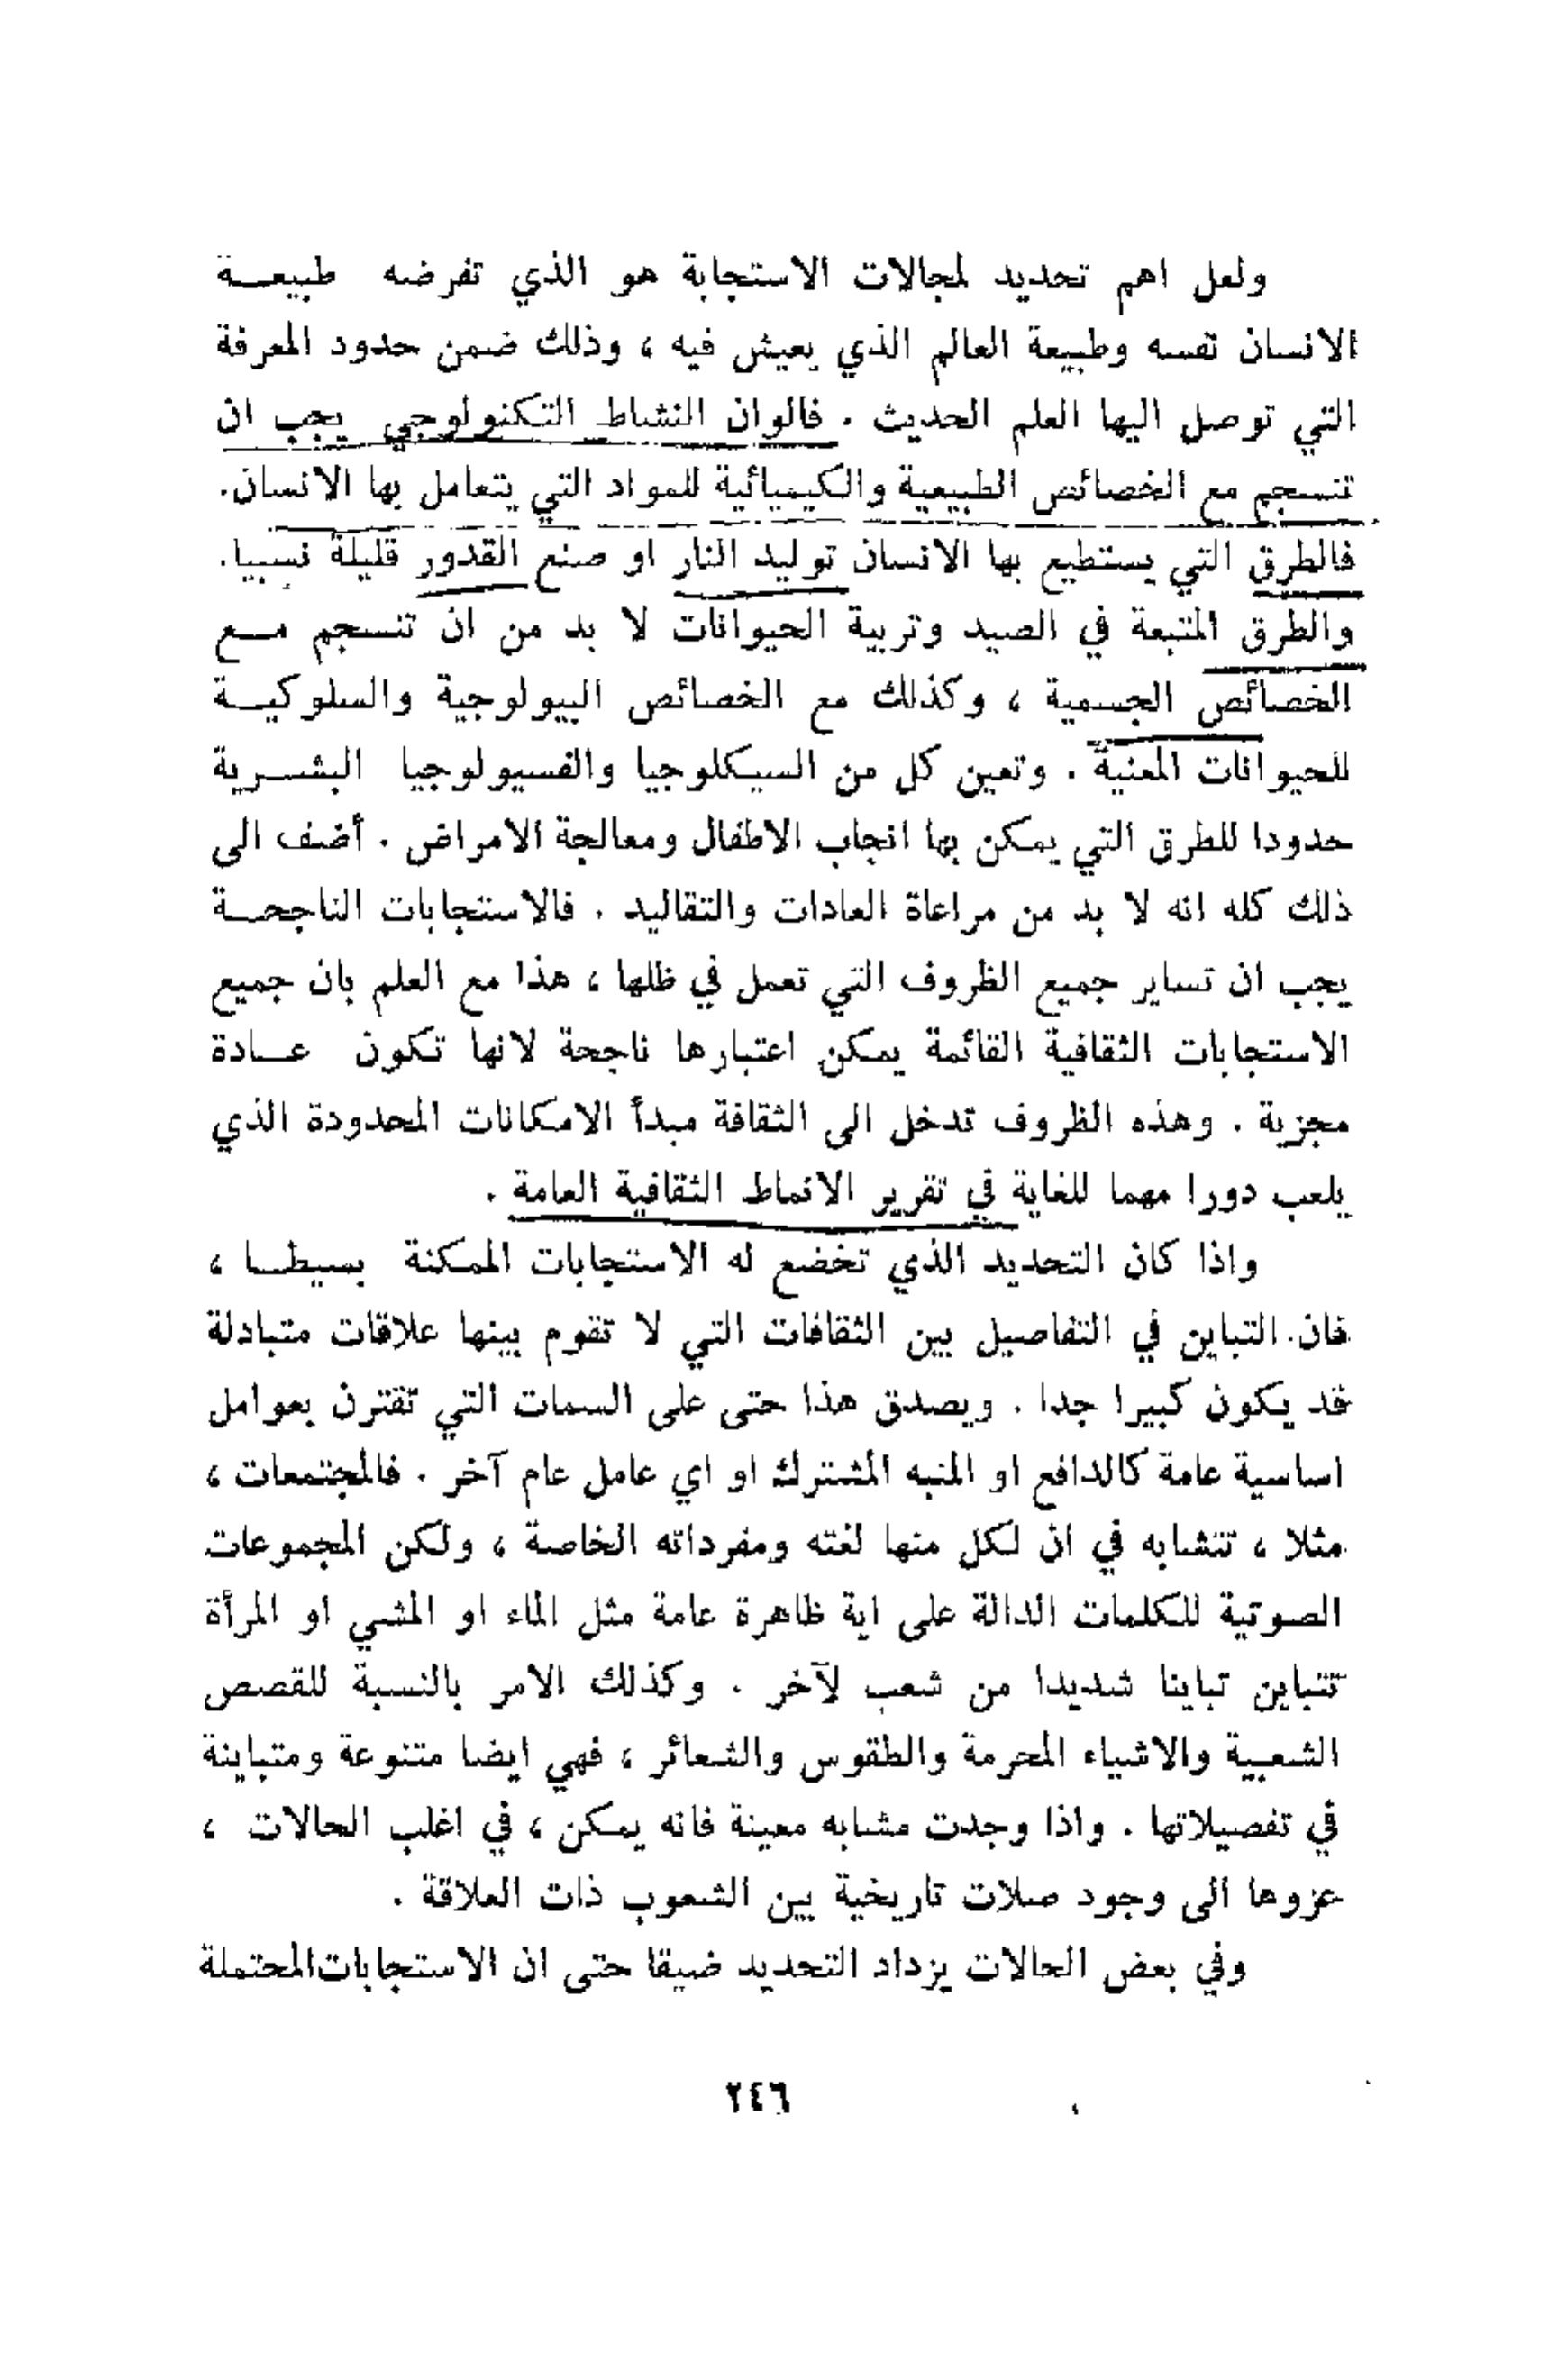 ولعل اهم تحديد لمجالات الاستجابة هو الذي تفرضه طبيعـــة
الانسان نفسه وطبيعة العالم الذي يعيش فيه ، وذلك ضمن حدود المعرفة
التي توصل اليها العلم الحديث . فالوان النشاط التكنولوجي يجب ان
تنسجم مع الخصائص الطبيعية والكيميائية للمواد التي يتعامل بها الانسان.
فالطرق التي يستطيع بها الانسان توليد النار او صنع القدور قليلة نسبيا.
والطرق المتبعة في الصيد وتربية الحيوانات لا بد من ان تنسجم مـــع
الخصائص الجسمية ، وكذلك مع الخصائص البيولوجية والسلوكيـــة
للحيوانات المعنية . وتعين كل من السيكلوجيا والفسيولوجيا البشـــرية
حدودا للطرق التي يمكن بها انجاب الاطفال ومعالجة الامراض . أضف الى
ذلك كله انه لا بد من مراعاة العادات والتقاليد . فالاستجابات الناجحـــة
يجب ان تساير جميع الظروف التي تعمل في ظلها ، هذا مع العلم بان جميع
الاستجابات الثقافية القائمة يمكن اعتبارها ناجحة لانها تكون عـــادة
مجزية . وهذه الظروف تدخل الى الثقافة مبدأ الامكانات المحدودة الذي
يلعب دورا مهما للغاية في تقرير الانماط الثقافية العامة .
واذا كان التحديد الذي تخضع له الاستجابات الممكنة بسيطـــا ،
فان التباين في التفاصيل بين الثقافات التي لا تقوم بينها علاقات متبادلة
قد يكون كبيرا جدا . ويصدق هذا حتى على السمات التي تقترن بعوامل
اساسية عامة كالدافع او المنبه المشترك او اي عامل عام آخر . فالمجتمعات ،
مثلا ، تتشابه في ان لكل منها لغته ومفرداته الخاصة ، ولكن المجموعات
الصوتية للكلمات الدالة على اية ظاهرة عامة مثل الماء او المشي او المرأة
تتباين تباينا شديدا من شعب لآخر . وكذلك الامر بالنسبة للقصص
الشعبية والاشياء المحرمة والطقوس والشعائر ، فهي ايضا متنوعة ومتباينة
في تفصيلاتها . واذا وجدت مشابه معينة فانه يمكن ، في اغلب الحالات ،
عزوها الى وجود صلات تاريخية بين الشعوب ذات العلاقة .
وفي بعض الحالات يزداد التحديد ضيقا حتى ان الاستجابات المحتملة
٢٤٦